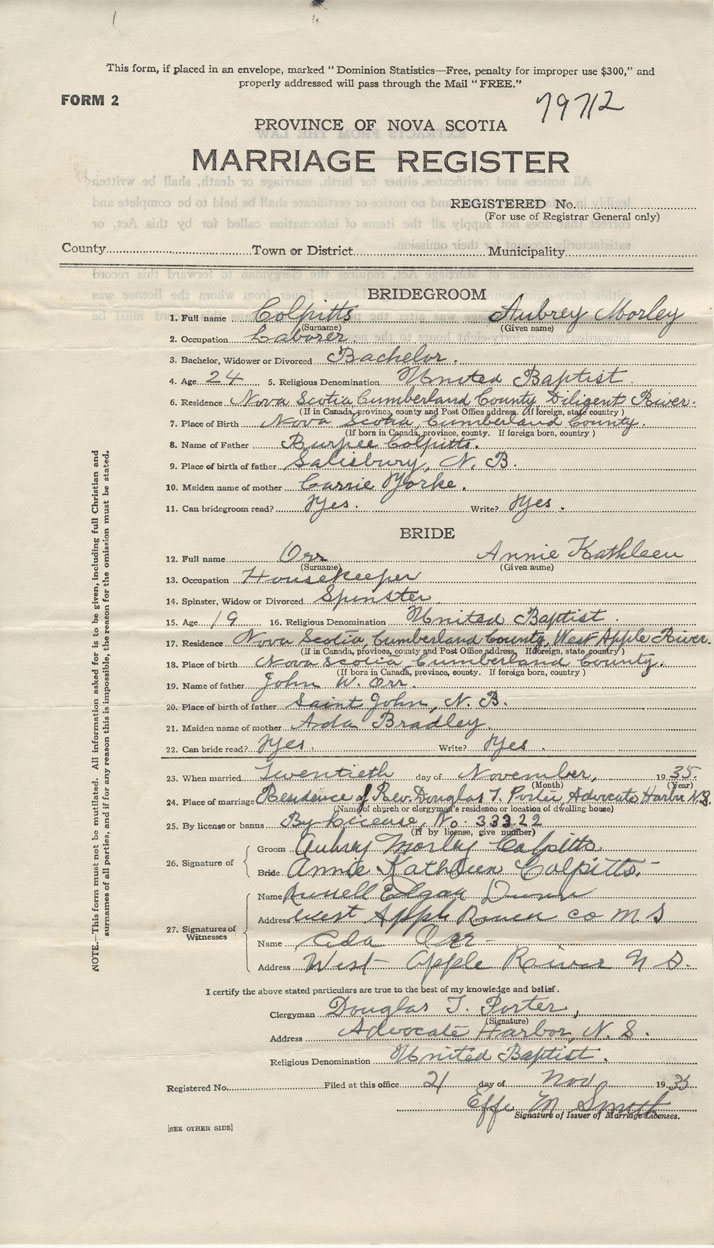 This form, if placed in an envelope, marked "Dominion Statistics—Free, penalty for improper use $300," and
properly addressed will pass through the Mail "FREE."
FORM 2
79712
PROVINCE OF NOVA SCOTIA
MARRIAGE REGISTER
REGISTERED No.
(For use of Registrar General only)
County Town or District Municipality
BRIDEGROOM
1. Full name Colpitts Aubrey Morley
(Surname) (Given name)
2. Occupation Laborer.
3. Bachelor, Widower or Divorced Bachelor.
4. Age 24 5. Religious Denomination United Baptist.
6. Residence Nova Scotia Cumberland County Diligent River.
(If in Canada, province, county and Post Office address. If foreign, state country)
7. Place of Birth Nova Scotia, Cumberland County.
(If born in Canada, province, county. If foreign born, country)
8. Name of Father Burpee Colpitts.
9. Place of birth of father Salisbury, N. B.
10. Maiden name of mother Carrie Yorke.
11. Can bridegroom read? Yes. Write? Yes.
BRIDE
12. Full name Orr Annie Kathleen
(Surname) (Given name)
13. Occupation Housekeeper
14. Spinster, Widow or Divorced Spinster
15. Age 19 16. Religious Denomination United Baptist.
17. Residence Nova Scotia, Cumberland County, West Apple River.
(If in Canada, province, county and Post Office address, If foreign, state country)
18. Place of birth Nova Scotia, Cumberland County.
(If born in Canada, province, county. If foreign born, country)
19. Name of father John W. Orr.
20. Place of birth of father Saint John, N. B.
21. Maiden name of mother Ada Bradley.
22. Can bride read? Yes. Write? Yes.
23. When married Twentieth day of November, 1935.
(Month) (Year)
24. Place of marriage Residence of Rev. Douglas T. Porter, Advocate Harbor N.S.
(Name of church or clergyman's residence or location of dwelling house)
25. By license or banns By License, No. 33322
(If by license, give number)
26. Signature of
Groom Aubrey Morley Colpitts
Bride Annie Kathleen Colpitts.
27. Signatures of Witnesses
Name Russell Edgar Dunn
Address West Apple River co N S
Name Ada Orr
Address West Apple River N S.
I certify the above stated particulars are true to the best of my knowledge and belief.
Clergyman Douglas T. Porter,
(Signature)
Address Advocate Harbor, N. S.
Religious Denomination United Baptist.
Registered No. Filed at this office 21 day of Nov 1935
Effie M Smith
Signature of Issuer of Marriage Licenses.
[SEE OTHER SIDE]
NOTE.—This form must not be mutilated. All information asked for is to be given, including full Christian and
surnames of all parties, and if for any reason this is impossible, the reason for the omission must be stated.